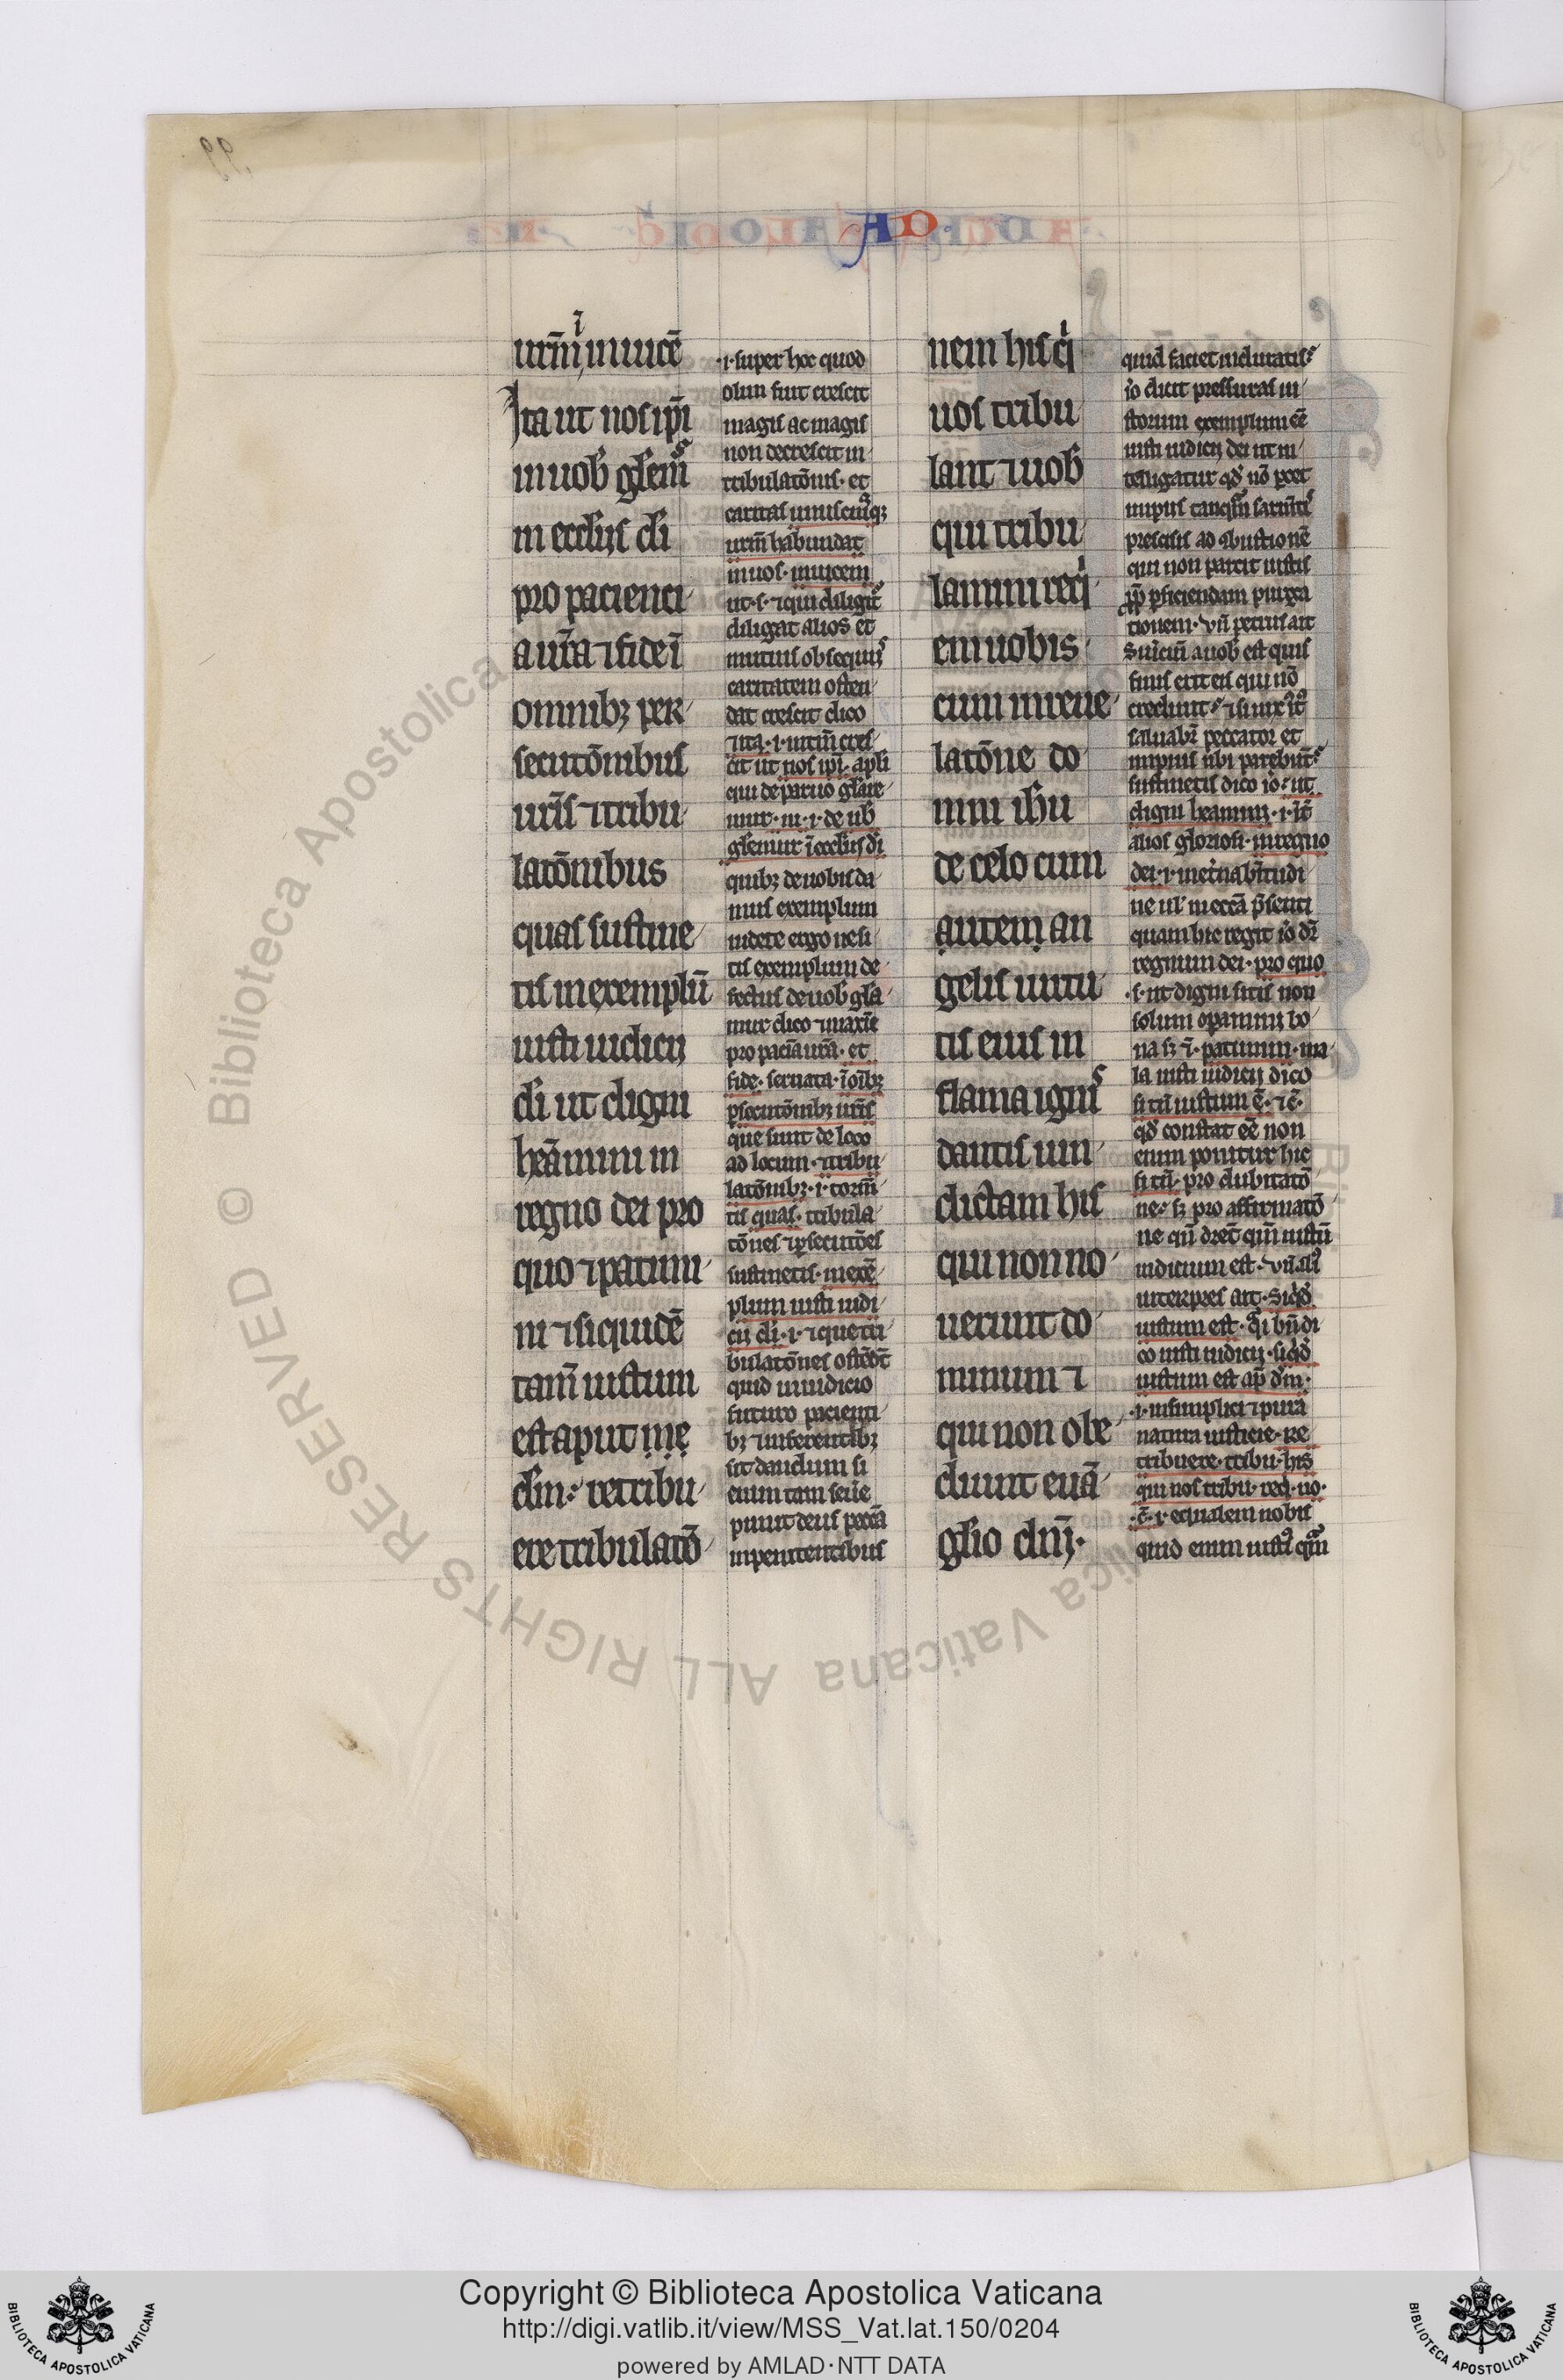 AD
urm̄ inuicē
Ita ut nos ipi̅
in uob̅ glem̅
in eccliis di
pro pacienci
a ur̄a ⁊ fide i̅
omnibꝫ per
secutōnibus
ur̄is ⁊ tribu
latōnibus
quas sustine
tis in exemplū
iusti iudicij
di ut digni
heāmini in
regno dei pro
quo ⁊ patimi
ni ⁊ si quidē
tam̄ iustum
est aput
dm̄ retribu
ere tribulatō
·i· super hoc quod
olim fuit crescit
magis ac magis
non decrescit in
tribulatōnis· et
caritas uniuscuiꝰqꝫ
urm̄ habundat
in uos· inuicem
ut ·s· ⁊ qui diligit᷑
diligat alios et
mutuis obsequijs
caritatem osten
dat crescit dico
⁊ ita ·i· intm̄ cres
cit ut nos ipi̅· apli
qui de paruo gl̄are
mur· in ·i· de uob̅
gl̄emur i̅ eccl̄ijs di
quibꝫ de uobis da
mus exemplum
uidete ergo ne si
tis exemplum de
fectus de uob̅ gl̄a
mur dico ⁊ maxīe
pro paciā ur̄a· et
fide· seruata· i̅ oi̅bꝫ
ꝑsecutōnibꝫ ur̄is
que sunt de loco
ad locum· ⁊ tribu
latōnibꝫ ·i· torm̄
tis quas· tribula
tōnes ⁊ ꝑsecutōes
sustinetis· in exē
plum iusti iudi
cij di ·i· ⁊ que tri
bulatōnes ostēdt̄
quid in iudicio
futuro pacienti
bꝫ ⁊ inferentibꝫ
sit dandum si
enim tam seu̅e
punit deus peccā
inpenitentibus
nem his qi
uos tribu
lant ⁊ uob̅
qui tribu
lamini reqi
em uobis
cum in reue
latōne do
mini ihu
de celo cum
autem an
gelis uirtu
tis eius in
flama ignis
dantis uin
dictam his
qui non no
uerunt do
minum ⁊
qui non obe
diunt euā
glio dn̄i·
quid faciet induratis
io̅ dicit pressuras iu
storum exemplum eē
iusti iudicij dei ut in
telligatur qd̅ nō parcet
impiis tanqm̄ sarm̄tis
prescisis ad 9bustionē
qui non parcit iustis
ꝓp̄ ꝑficiendam purga
tionem· un̄ petrus ait
finis erit eis qui nō
credunt
saluabr̄ peccator et
impius ubi parebunt
sustinetis dico io̅· ut
digni heamini ·i· in̄t
alios gloriosi· in regno
dei ·i· in et̄na bt̄itudi
ne ul̄ in eccā p̄senti
quam hic regit io̅ dr̄
regnum dei· pro quo
·s· ut digni sitis non
solum opamini bo
na sꝫ ⁊· patimini· ma
la iusti iudicij dico
si tn̄ iustum ē· ⁊c̄·
qd̅ constat eē non
enim ponitur hic
si tn̄· pro dubitatō
ne· sꝫ pro affirmatō
iudicium est· un̄ aliꝰ
interpres ait· siqd̅
iustum est· qi bn̄ di
co iusti iudicij· siqd̅
iustum est ap̄ dm̄·
·i· in simplici ⁊ pura
natura iusticie· re
tribuere· tribu· his
qui nos tribu· req· uo·
·c̄· ·i· equalem nobis
quid enim iustiꝰ qm̄
Copyright © Biblioteca Apostolica Vaticana
http://digi.vatlib.it/view/MSS_Vat.lat.150/0204
powered by AMLAD·NTT DATA
© Biblioteca Apostolica Vaticana ALL RIGHTS RESERVED
BIBLIOTECA APOSTOLICA VATICANA
BIBLIOTECA APOSTOLICA VATICANA